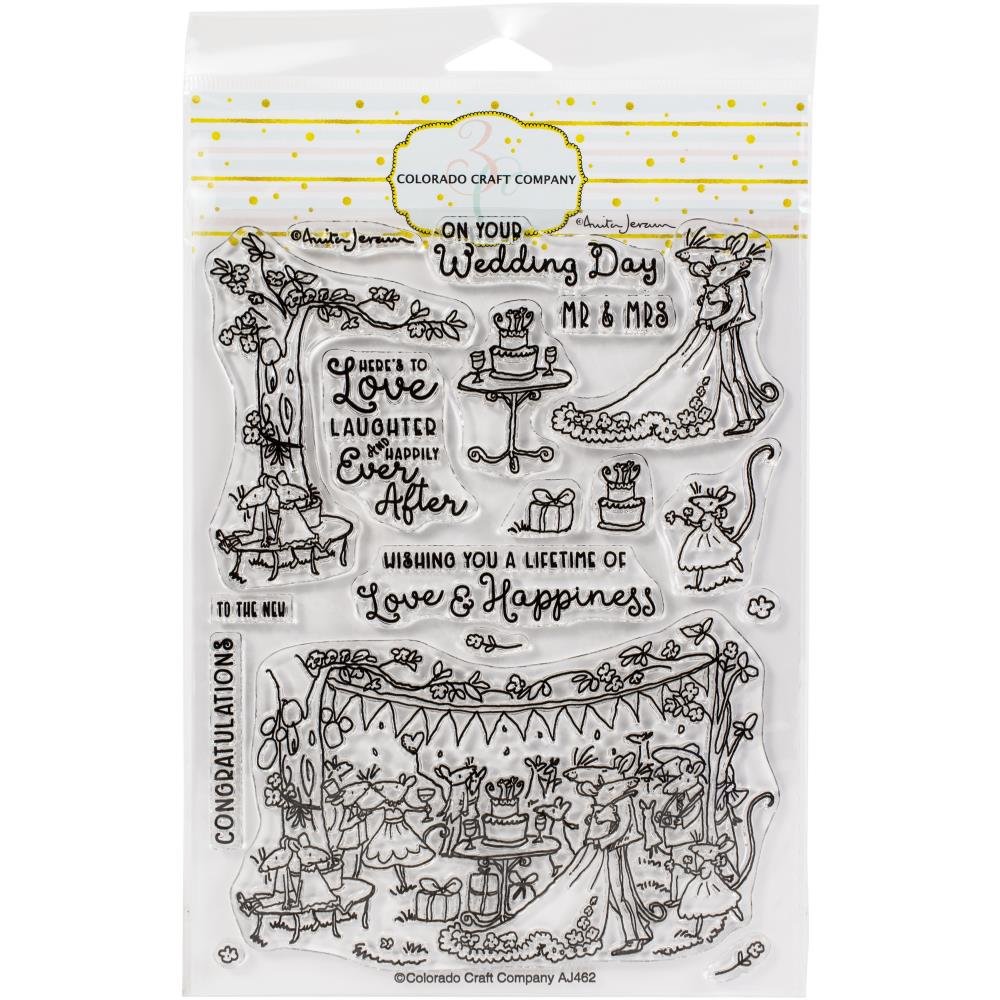 COLORADO CRAFT COMPANY
©Anita Jeram
©Anita Jeram
ON YOUR
Wedding Day
MR & MRS
HERE'S TO
Love
LAUGHTER
AND HAPPILY
Ever
After
WISHING YOU A LIFETIME OF
Love & Happiness
TO THE NEW
CONGRATULATIONS
©Colorado Craft Company AJ462